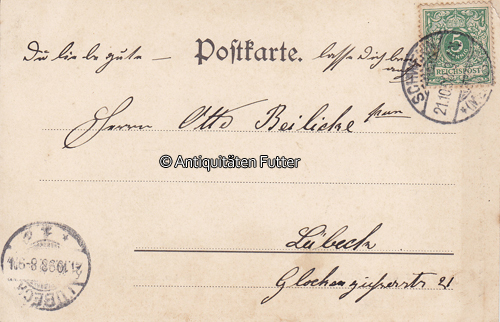 Du liebe gute — Postkarte. lasse Dich
5
REICHSPOST
SCHW
21.10.
Herrn Otto Beilicke
© Antiquitäten Futter
Lübeck
Glockengießerstr 21
LÜBECK
21.10.98.8-9N.